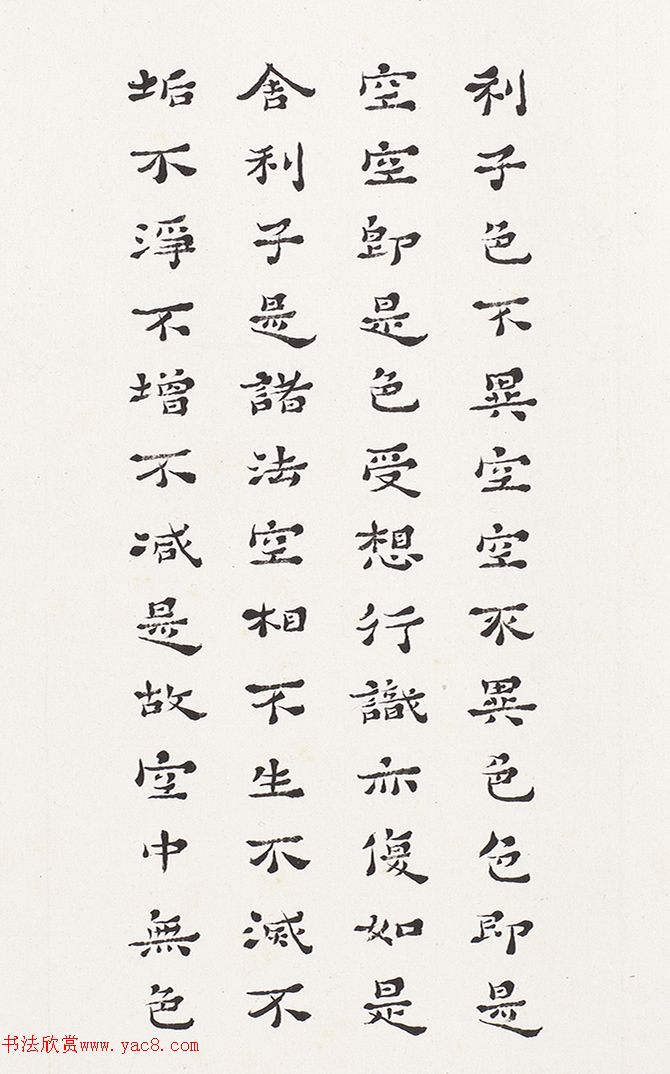 利子色不異空空不異色色即是
空空即是色受想行識亦復如是
舎利子是諸法空相不生不滅不
垢不淨不增不減是故空中無色
书法欣赏www.yac8.com